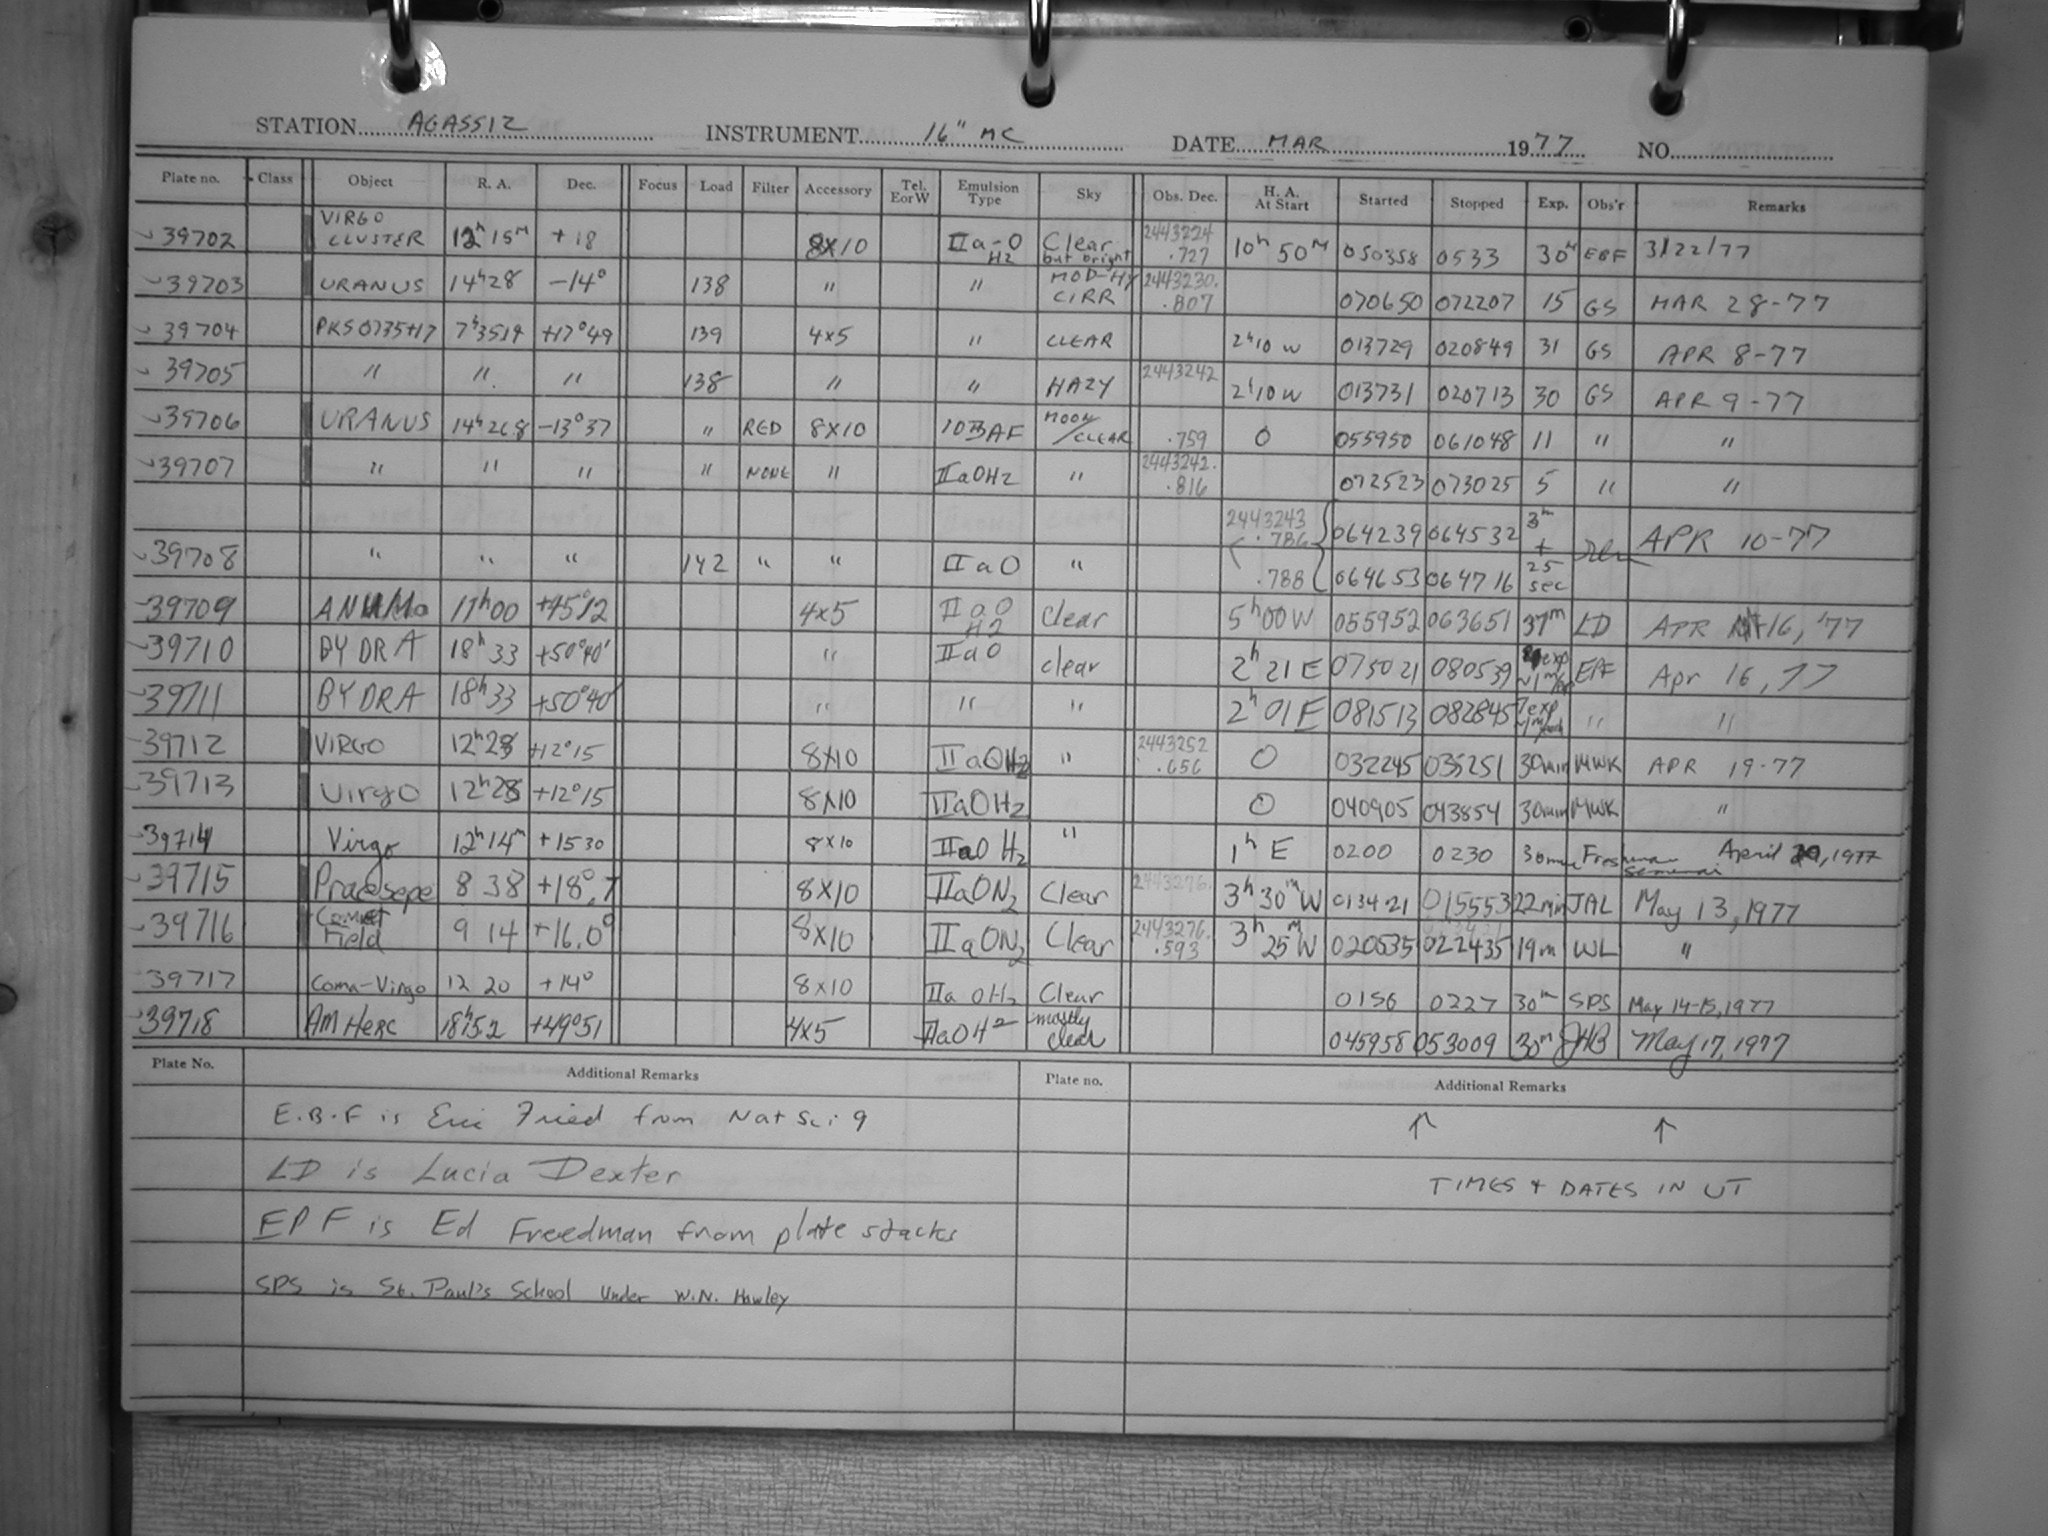 STATION AGASSIZ INSTRUMENT 16" MC DATE MAR 1977 NO.
Plate no. Class Object R. A. Dec. Focus Load Filter Accessory Tel. E or W Emulsion Type Sky Obs. Dec. H. A. At Start Started Stopped Exp. Obs'r Remarks
39702 VIRGO CLUSTER 12h 15m +18 8x10 IIa-O H2 Clear but bright 2443224 .727 10h 50m 050358 0533 30m EBF 3/22/77
39703 URANUS 14h28 -14° 138 " " MOD-HY CIRR 2443230. .807 070650 072207 15 GS MAR 28-77
39704 PKS0735+17 7h3519 +17°49 139 4x5 " CLEAR 2h10 W 013729 020849 31 GS APR 8-77
39705 " " " 138 " " HAZY 2443242 2h10 W 013731 020713 30 GS APR 9-77
39706 URANUS 14h268 -13°37 " RED 8X10 103AF MOON/CLEAR .759 0 055950 061048 11 " "
39707 " " " " NONE " IIaOH2 " 2443242. .816 072523 073025 5 " "
2443243 .786 064239 064532 3m + APR 10-77
39708 " " " 142 " " IIaO " .788 064653 064716 25 sec
39709 17h00 +45°12 4x5 IIaO H2 Clear 5h00W 055952 063651 37m LD APR 16, '77
39710 BY DRA 18h 33 +50°40' " IIaO clear 2h 21 E 073021 080539 exp ~1m EPF Apr 16, 77
39711 BY DRA 18h 33 +50°40' " " " 2h 01 E 081513 082845 7exp ~1m/each " "
39712 VIRGO 12h28 +12°15 8x10 IIaOH2 " 2443252 .656 0 032245 035251 30min MWK APR 19-77
39713 Virgo 12h28 +12°15 8X10 IIaOH2 0 040905 043854 30min MWK "
39714 Virgo 12h14m +1530 8x10 IIaO H2 " 1h E 0200 0230 30min Freshman Seminar April 20, 1977
39715 Praesepe 8 38 +18°.7 8X10 IIaON2 Clear 2443276. 3h 30m W 013421 015553 22min JAL May 13, 1977
39716 Comet Field 9 14 +16.0° 8X10 IIaON2 Clear 2443276. .593 3h 25m W 020535 022435 19m WL "
39717 Coma-Virgo 12 20 +14° 8x10 IIa OH2 Clear 0156 0227 30m SPS May 14-15, 1977
39718 AM Herc 18h52 +49°51 4x5 IIaOH2 mostly clear 045958 053009 30m JHB May 17, 1977
Plate No. Additional Remarks Plate no. Additional Remarks
E.B.F is Eric Fried from Nat Sci 9 ↑ ↑
LD is Lucia Dexter TIMES + DATES IN UT
EPF is Ed Freedman from plate stacks
SPS is St. Paul's School under W.N. Hawley